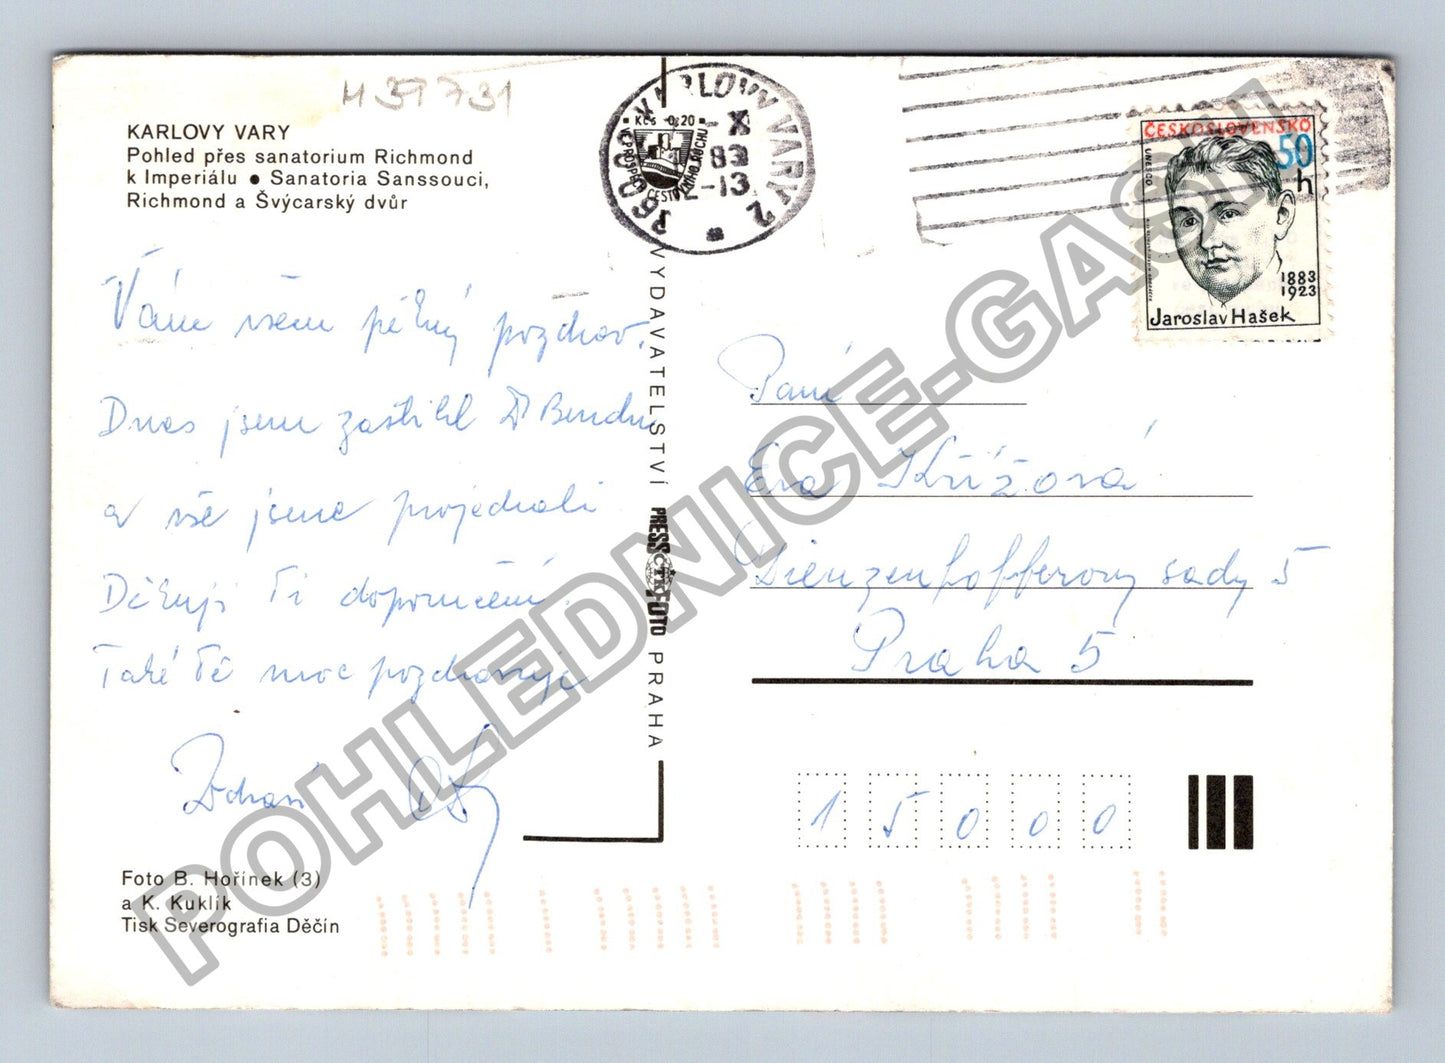 H39731
KARLOVY VARY
Pohled přes sanatorium Richmond
k Imperiálu • Sanatoria Sanssouci,
Richmond a Švýcarský dvůr
Vám všem pěkný pozdrav.
Dnes jsem zastihl Dr Bendu
a vše jsme projednali
Děkuji Ti doporučení.
Také Tě moc pozdravuje
Foto B. Hořínek (3)
a K. Kuklík
Tisk Severografia Děčín
VYDAVATELSTVÍ PRESSFOTO PRAHA
ČTK
360 01 KARLOVY VARY 2
-X
83
-13
Kčs 0.20
VE PROSPĚCH CESTOVNÍHO RUCHU
ČESKOSLOVENSKO
50
h
UNESCO
1883
1923
Jaroslav Hašek
Paní
Eva Křížová
Dienzenhofferovy sady 5
Praha 5
1 5 0 0 0
POHLEDNICE-GASH